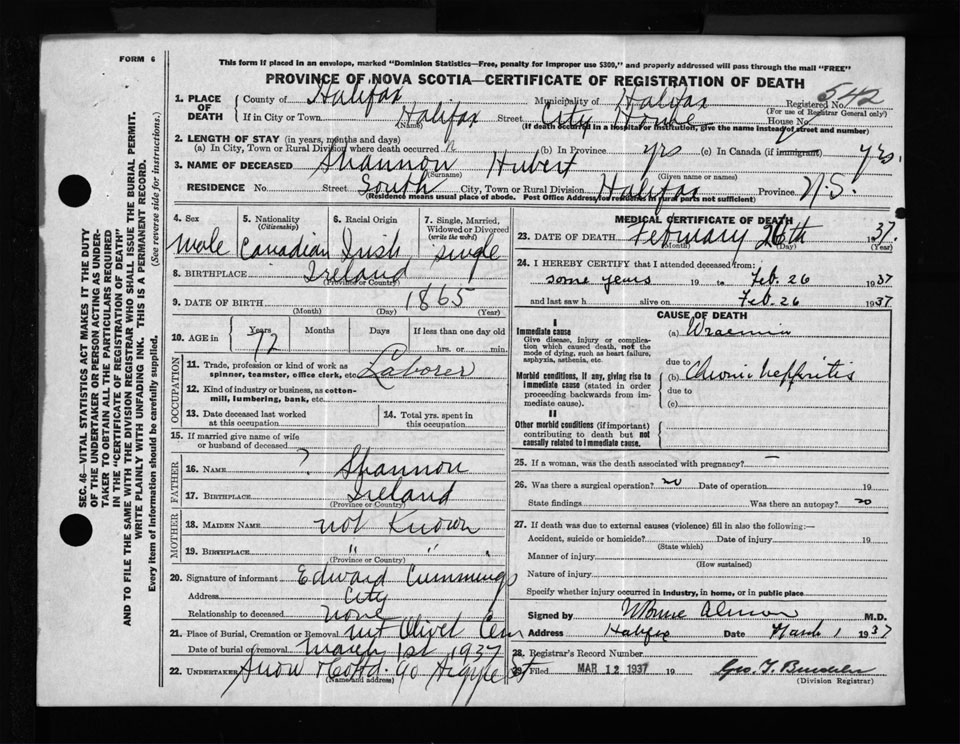 FORM 6
This form if placed in an envelope, marked "Dominion Statistics—Free, penalty for improper use $300," and properly addressed will pass through the mail "FREE"
PROVINCE OF NOVA SCOTIA—CERTIFICATE OF REGISTRATION OF DEATH
1. PLACE OF DEATH County of Halifax Municipality of Halifax Registered No. 542
(For use of Registrar General only)
If in City or Town Halifax Street City Home House No.
(Name) (If death occurred in a hospital or institution, give the name instead of street and number)
2. LENGTH OF STAY (in years, months and days)
(a) In City, Town or Rural Division where death occurred (b) In Province yrs (c) In Canada (if immigrant) yrs.
3. NAME OF DECEASED Shannon Hubert
(Surname) (Given name or names)
RESIDENCE No. Street South City, Town or Rural Division Halifax Province N.S.
(Residence means usual place of abode. Post Office Address for residents in rural parts not sufficient)
4. Sex 5. Nationality (Citizenship) 6. Racial Origin 7. Single, Married, Widowed or Divorced (write the word)
male Canadian Irish single
8. BIRTHPLACE Ireland
(Province or Country)
9. DATE OF BIRTH 1865
(Month) (Day) (Year)
10. AGE in Years Months Days If less than one day old
72 hrs. or min.
OCCUPATION
11. Trade, profession or kind of work as spinner, teamster, office clerk, etc. Laborer
12. Kind of industry or business, as cotton-mill, lumbering, bank, etc.
13. Date deceased last worked at this occupation
14. Total yrs. spent in this occupation
15. If married give name of wife or husband of deceased
FATHER
16. NAME ? Shannon
17. BIRTHPLACE Ireland
(Province or Country)
MOTHER
18. MAIDEN NAME not Known
19. BIRTHPLACE " "
(Province or Country)
20. Signature of informant Edward Cummings
Address City
Relationship to deceased none
21. Place of Burial, Cremation or Removal mt Olivet Cem
Date of burial or removal March 1st 1937
22. UNDERTAKER Snow & Co Ltd. 90 Argyle St
(Name and address)
MEDICAL CERTIFICATE OF DEATH
23. DATE OF DEATH February 26th 1937
(Month) (Day) (Year)
24. I HEREBY CERTIFY that I attended deceased from:
some years 19 to Feb. 26 1937
and last saw h alive on Feb. 26 1937
CAUSE OF DEATH
I
Immediate cause (a) Uraemia
Give disease, injury or complication which caused death, not the mode of dying, such as heart failure, asphyxia, asthenia, etc.
due to
Morbid conditions, if any, giving rise to immediate cause (stated in order proceeding backwards from immediate cause). (b) Chronic nephritis
due to
(c)
II
Other morbid conditions (if important) contributing to death but not causally related to immediate cause.
25. If a woman, was the death associated with pregnancy? —
26. Was there a surgical operation? no Date of operation 19
State findings Was there an autopsy? no
27. If death was due to external causes (violence) fill in also the following:—
Accident, suicide or homicide? Date of injury 19
(State which)
Manner of injury
(How sustained)
Nature of injury
Specify whether injury occurred in industry, in home, or in public place
Signed by Almon M.D.
Address Halifax Date March 1 1937
28. Registrar's Record Number
29. Filed MAR 12 1937 19 Geo. T.
(Division Registrar)
SEC. 46—VITAL STATISTICS ACT MAKES IT THE DUTY
OF THE UNDERTAKER OR PERSON ACTING AS UNDER-
TAKER TO OBTAIN ALL THE PARTICULARS REQUIRED
IN THE "CERTIFICATE OF REGISTRATION OF DEATH"
AND TO FILE THE SAME WITH THE DIVISION REGISTRAR WHO SHALL ISSUE THE BURIAL PERMIT.
WRITE PLAINLY WITH UNFADING INK. THIS IS A PERMANENT RECORD.
Every item of information should be carefully supplied. (See reverse side for instructions).